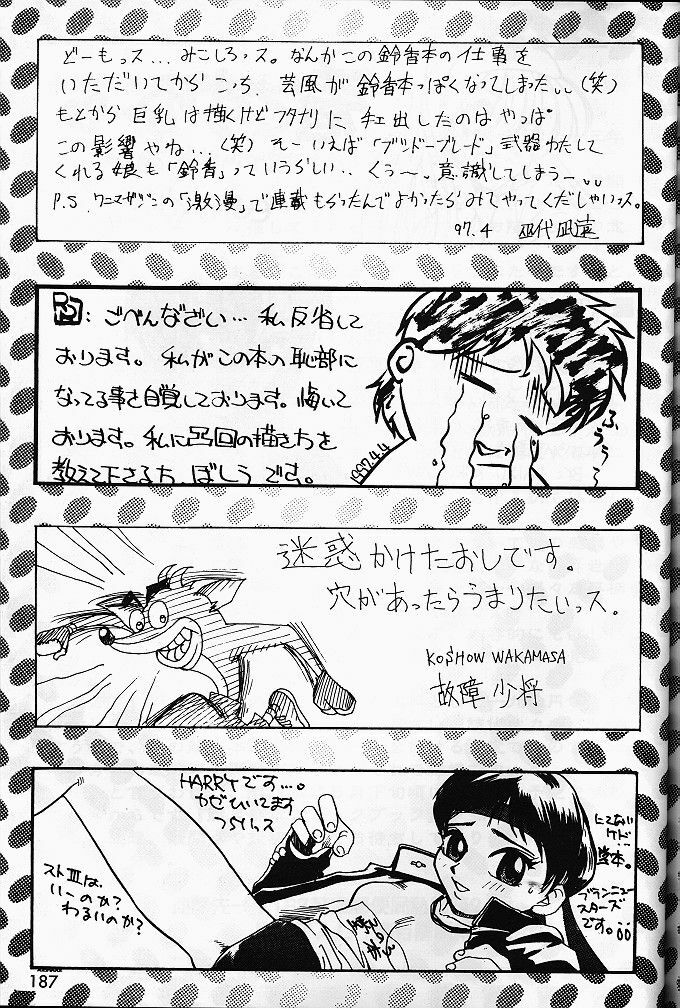 どーもっス…みこしろっス。なんかこの鈴香本の仕事を
いただいてからこっち、芸風が鈴香本っぽくなってしまった。。(笑)
もとから巨乳は描くけどフタナリに手出したのはやっぱ
この影響やね…(笑) そーいえば「ブシドーブレード」武器わたして
くれる娘も「鈴香」っていうらしい‥くぅ〜、意識してしまうー。。
P.S. ワニマガジンの「激漫」で連載もらったんでよかったらみてやってくだしゃいっス。
97.4
: ごべんなざい… 私反省して
おります。私がこの本の恥部に
なってる事を自覚しております。悔いて
おります。私に凸凹の描き方を
教えて下さる方、ぼしうです。
1997.4.4
ふぅぅ〜
迷惑かけたおしです。
穴があったらうまりたいっス。
KOSHOW WAKAMASA
故障少将
HARRYです…。
かぜひいてます
つらいっス
にてない
ケド
ブランニュー
スターズ
です。
ストⅢは
いいのか?
わるいのか?
187